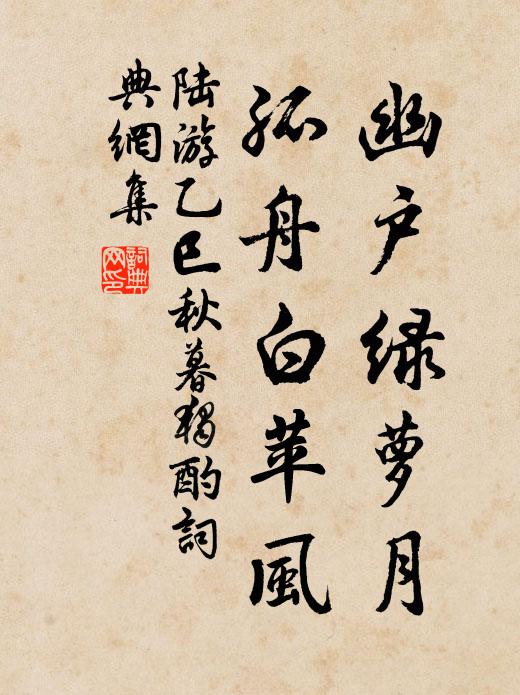 幽户绿萝月
孤舟白苹風
陆游乙巳秋暮獨酌詞
典網集
詞典
网印